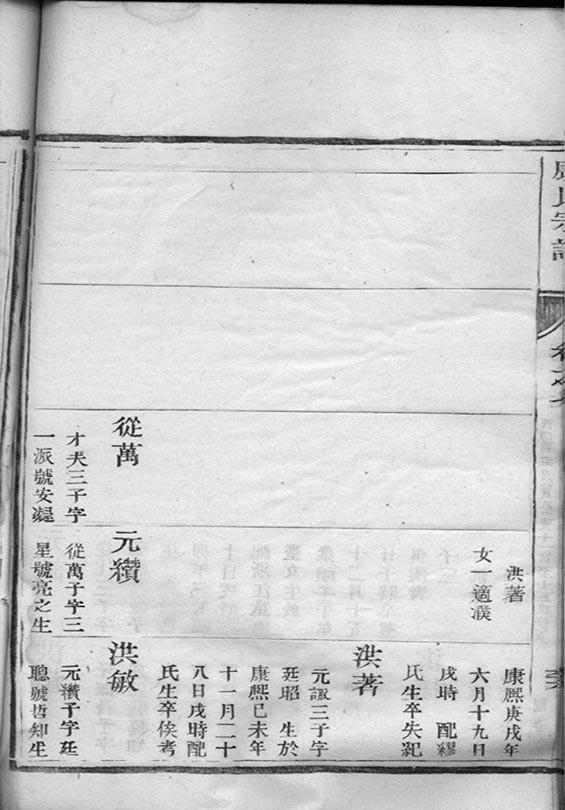 周氏宗譜
從萬
才夫三子字
一派號安
洪著
女一適濮
元纘
從萬子字三
星號亮之生
康熙庚戌年
六月十九日
戌時 配繆
氏生卒失紀
洪著
元諏三子字
廷昭 生於
康熙己未年
十一月二十
八日戌時配
氏生卒俟考
洪敏
元纘子字廷
聰號哲知生